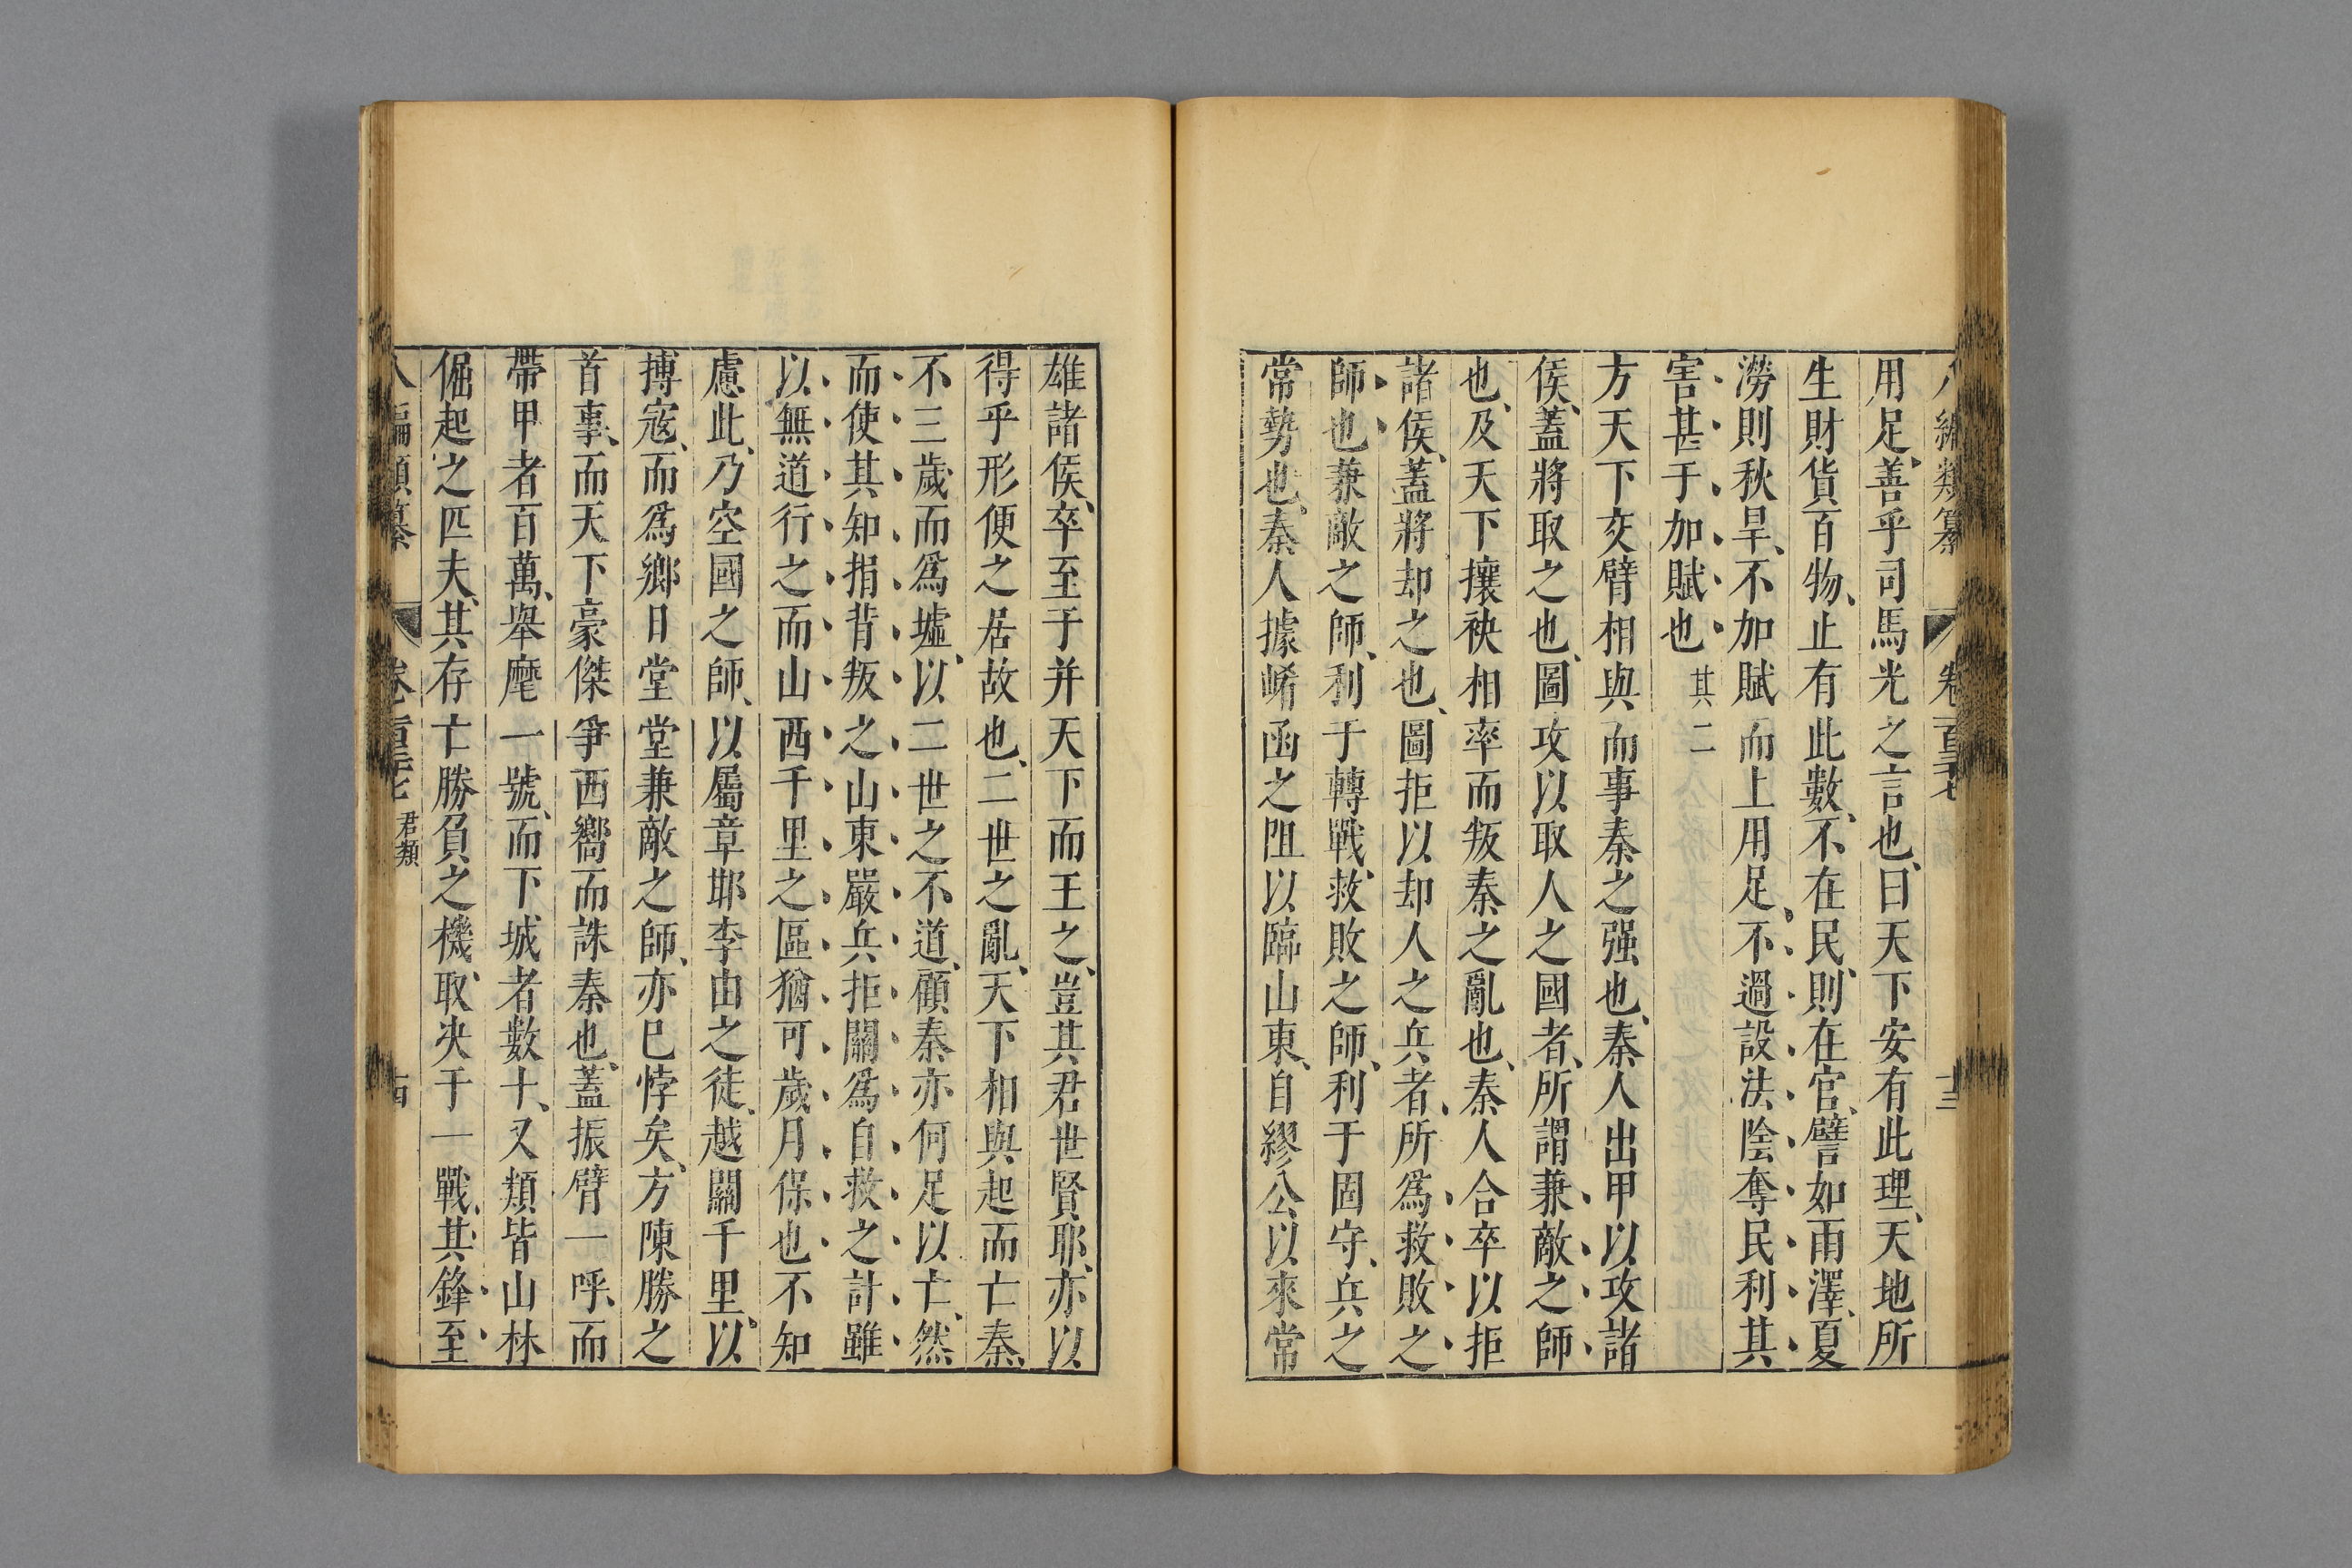 八編類纂 卷百三七 十三
用足善乎司馬光之言也、曰天下安有此理、天地所
生財貨百物、止有此數、不在民、則在官、譬如雨澤、夏
澇則秋旱、不加賦而上用足、不過設法陰奪民利其
害甚于加賦也 其二
方天下交臂相與而事秦之强也、秦人出甲以攻諸
侯、蓋將取之也、圖攻以取人之國者、所謂兼敵之師
也、及天下攘袂相率而叛秦之亂也、秦人合卒以拒
諸侯、蓋將却之也、圖拒以却人之兵者、所爲救敗之
師也兼敵之師、利于轉戰、救敗之師、利于固守、兵之
常勢也、秦人據崤函之阻以臨山東、自繆公以來常
雄諸侯、卒至于并天下而王之、豈其君世賢耶、亦以
得乎形便之居故也、二世之亂、天下相與起而亡秦、
不三歲而爲墟、以二世之不道、顧秦亦何足以亡、然
而使其知捐背叛之山東嚴兵拒關爲自救之計雖
以無道行之而山西千里之區猶可歲月保也不知
慮此、乃空國之師、以屬章邯李由之徒、越關千里、以
搏寇、而爲鄉日堂堂兼敵之師、亦已悖矣、方陳勝之
首事、而天下豪傑爭西嚮而誅秦也、蓋振臂一呼、而
帶甲者百萬、舉麾一號、而下城者數十、又類皆山林
倔起之匹夫、其存亡勝負之機、取決于一戰、其鋒至
八編類纂 卷百三七 君類 十四